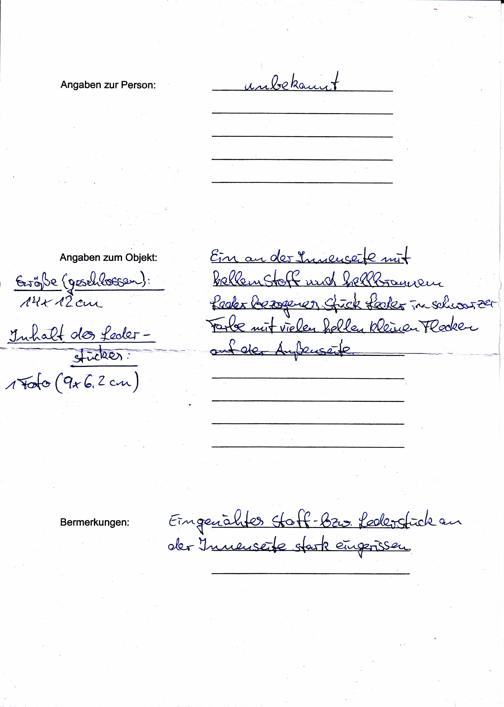 Angaben zur Person:
unbekannt
Angaben zum Objekt:
Größe (geschlossen):
14 x 12 cm
Inhalt des Leder-
stückes:
1 Foto (9 x 6,2 cm)
Ein an der Innenseite mit
hellem Stoff und hellbraunem
Leder bezogener Stück Leder in schwarzer
Farbe mit vielen hellen kleinen Flecken
auf der Außenseite
Bermerkungen:
Eingenähter Stoff- bzw. Lederstück an
der Innenseite stark eingerissen